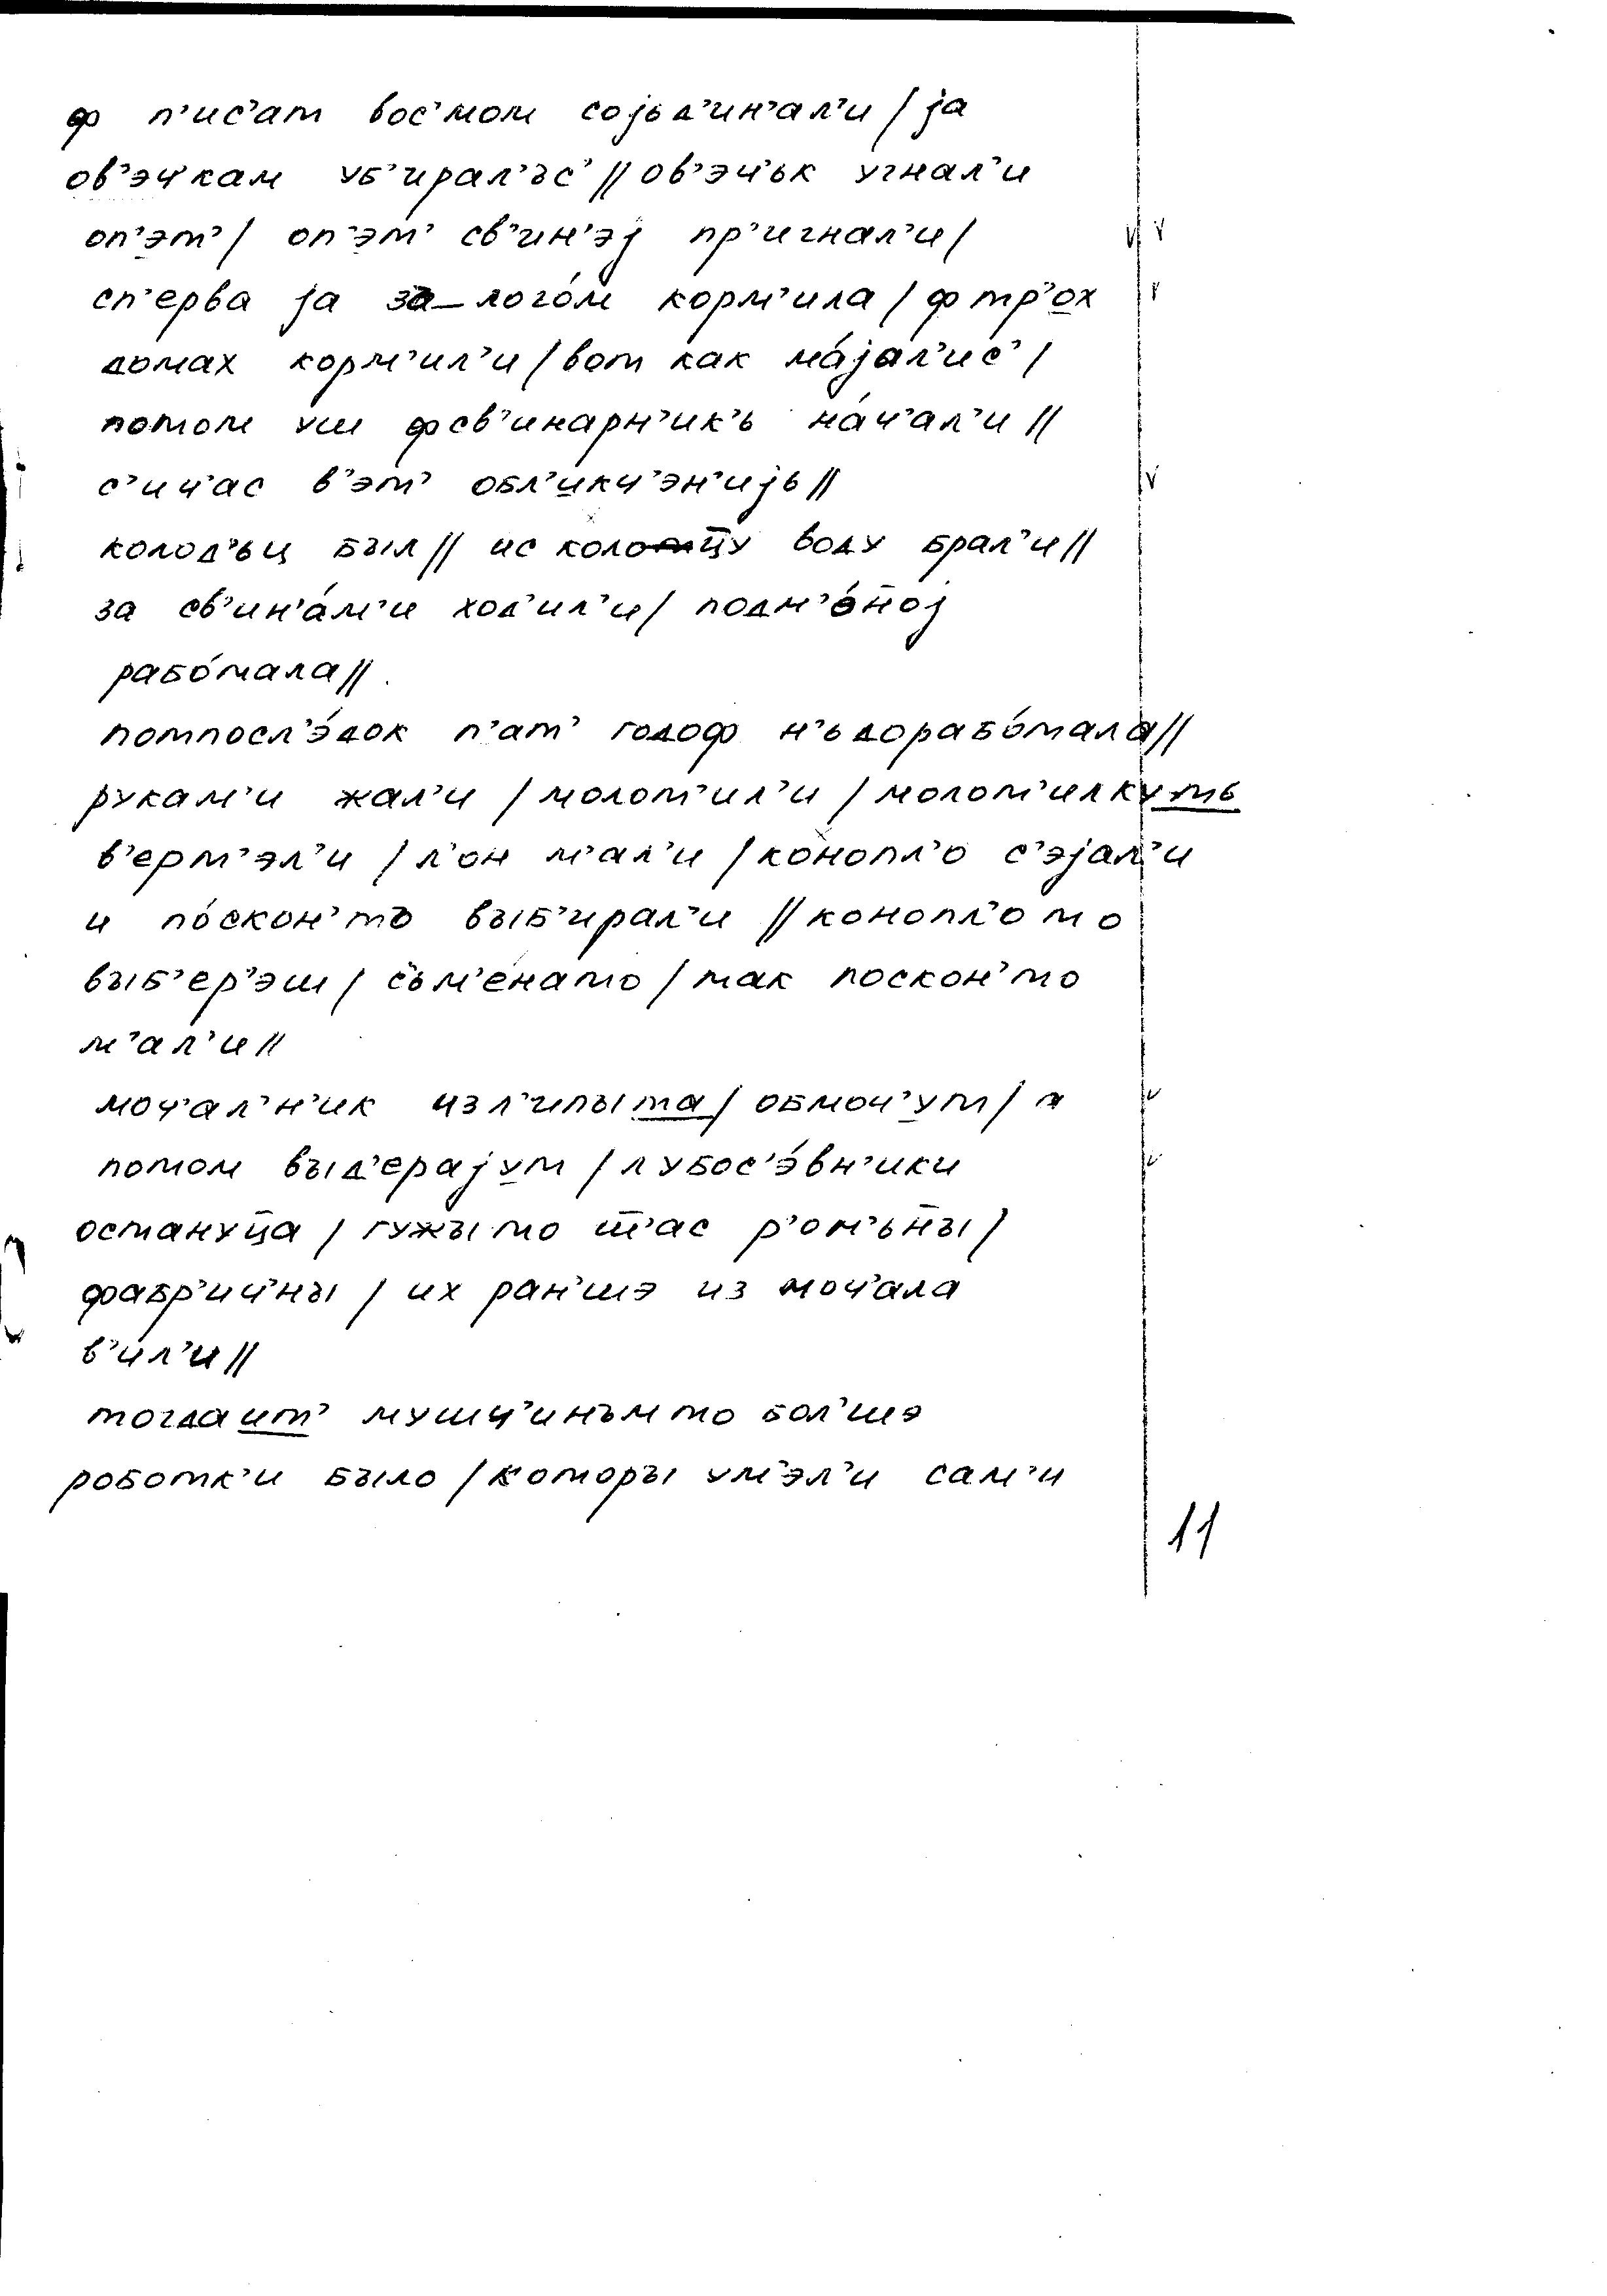 ф п'ис'ат вос'мом сојьд'ин'ал'и / ја
ов'эч'кам уб'ирал'ъс' // ов'эч'ьк угнал'и
оп'эт' / оп'эт' св'ин'эј пр'игнал'и /
сп'ерва ја за логóм корм'ила / ф тр'ох
домах корм'ил'и / вот как мáјал'ис' /
потом уш фсв'инарн'ик'ь нáч'ал'и //
с'ич'ас в'эт' обл'икч'эн'ијь //
колод'ьц был // ис колотц̄у воду брал'и //
за св'ин'áм'и ход'ил'и / подм'óн̄ој
рабóтала //
потпосл'éдок п'ат' годоф н'ьдорабóтала //
рукам'и жал'и / молот'ил'и / молот'илкуть
в'ерт'эл'и / л'он м'ал'и / конопл'о с'эјал'и
и пóскон'тъ выб'ирал'и // конопл'о то
выб'ер'эш / с'ьм'енато / так поскон'то
м'ал'и //
моч'ал'н'ик изл'ипыта / обмоч'ут / а
потом выд'ерајут / лубос'э́вн'ики
остануц̄а / гужы то ш̄'ас р'ом'ьн̄ы /
фабр'ич'ны / их ран'шэ из моч'ала
в'ил'и //
тогдаит' мушч'инъм то бол'шэ
роботк'и было / которы ум'эл'и сам'и
11